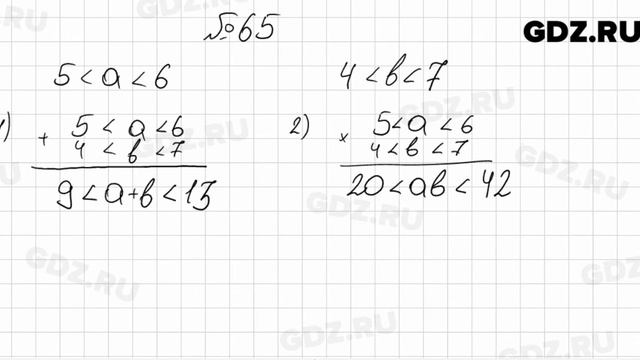 №65
GDZ.RU
5 < a < 6
4 < в < 7
1)
+ 5 < a < 6
4 < в < 7
9 < a+в < 13
2)
× 5 < a < 6
4 < в < 7
20 < aв < 42
GDZ.RU
GDZ.RU
GDZ.RU
GDZ.RU
GDZ.RU
GDZ.RU
GDZ.RU